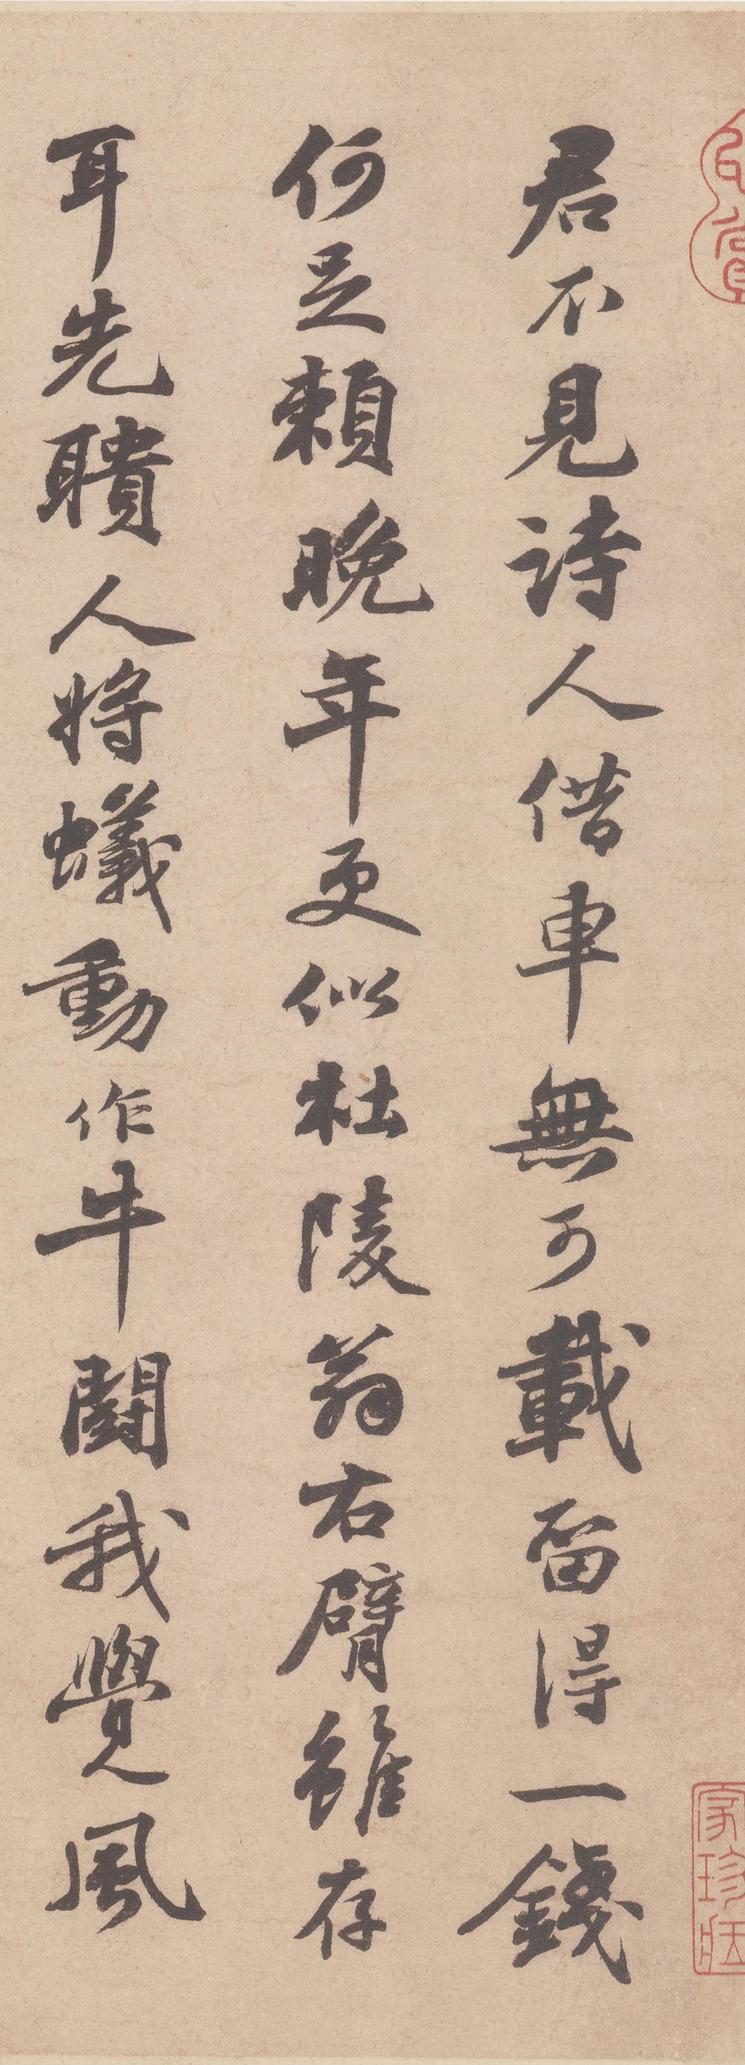 君不見詩人借車無可載留得一錢
何足賴晚年更似杜陵翁右臂雖存
耳先聵人將蟻動作牛鬪我覺風